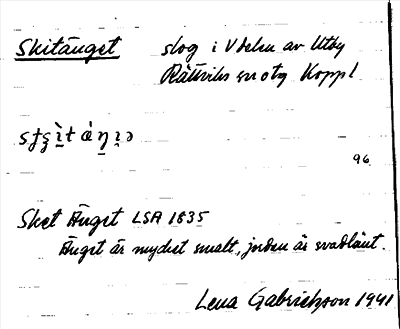 Skitänget slog i V delen av Utby
Rättviks sn otg Koppl
96
Sket Änget LSA 1835
Änget är mycket smalt, jorden är svadlänt.
Lena Gabrielsson 1941